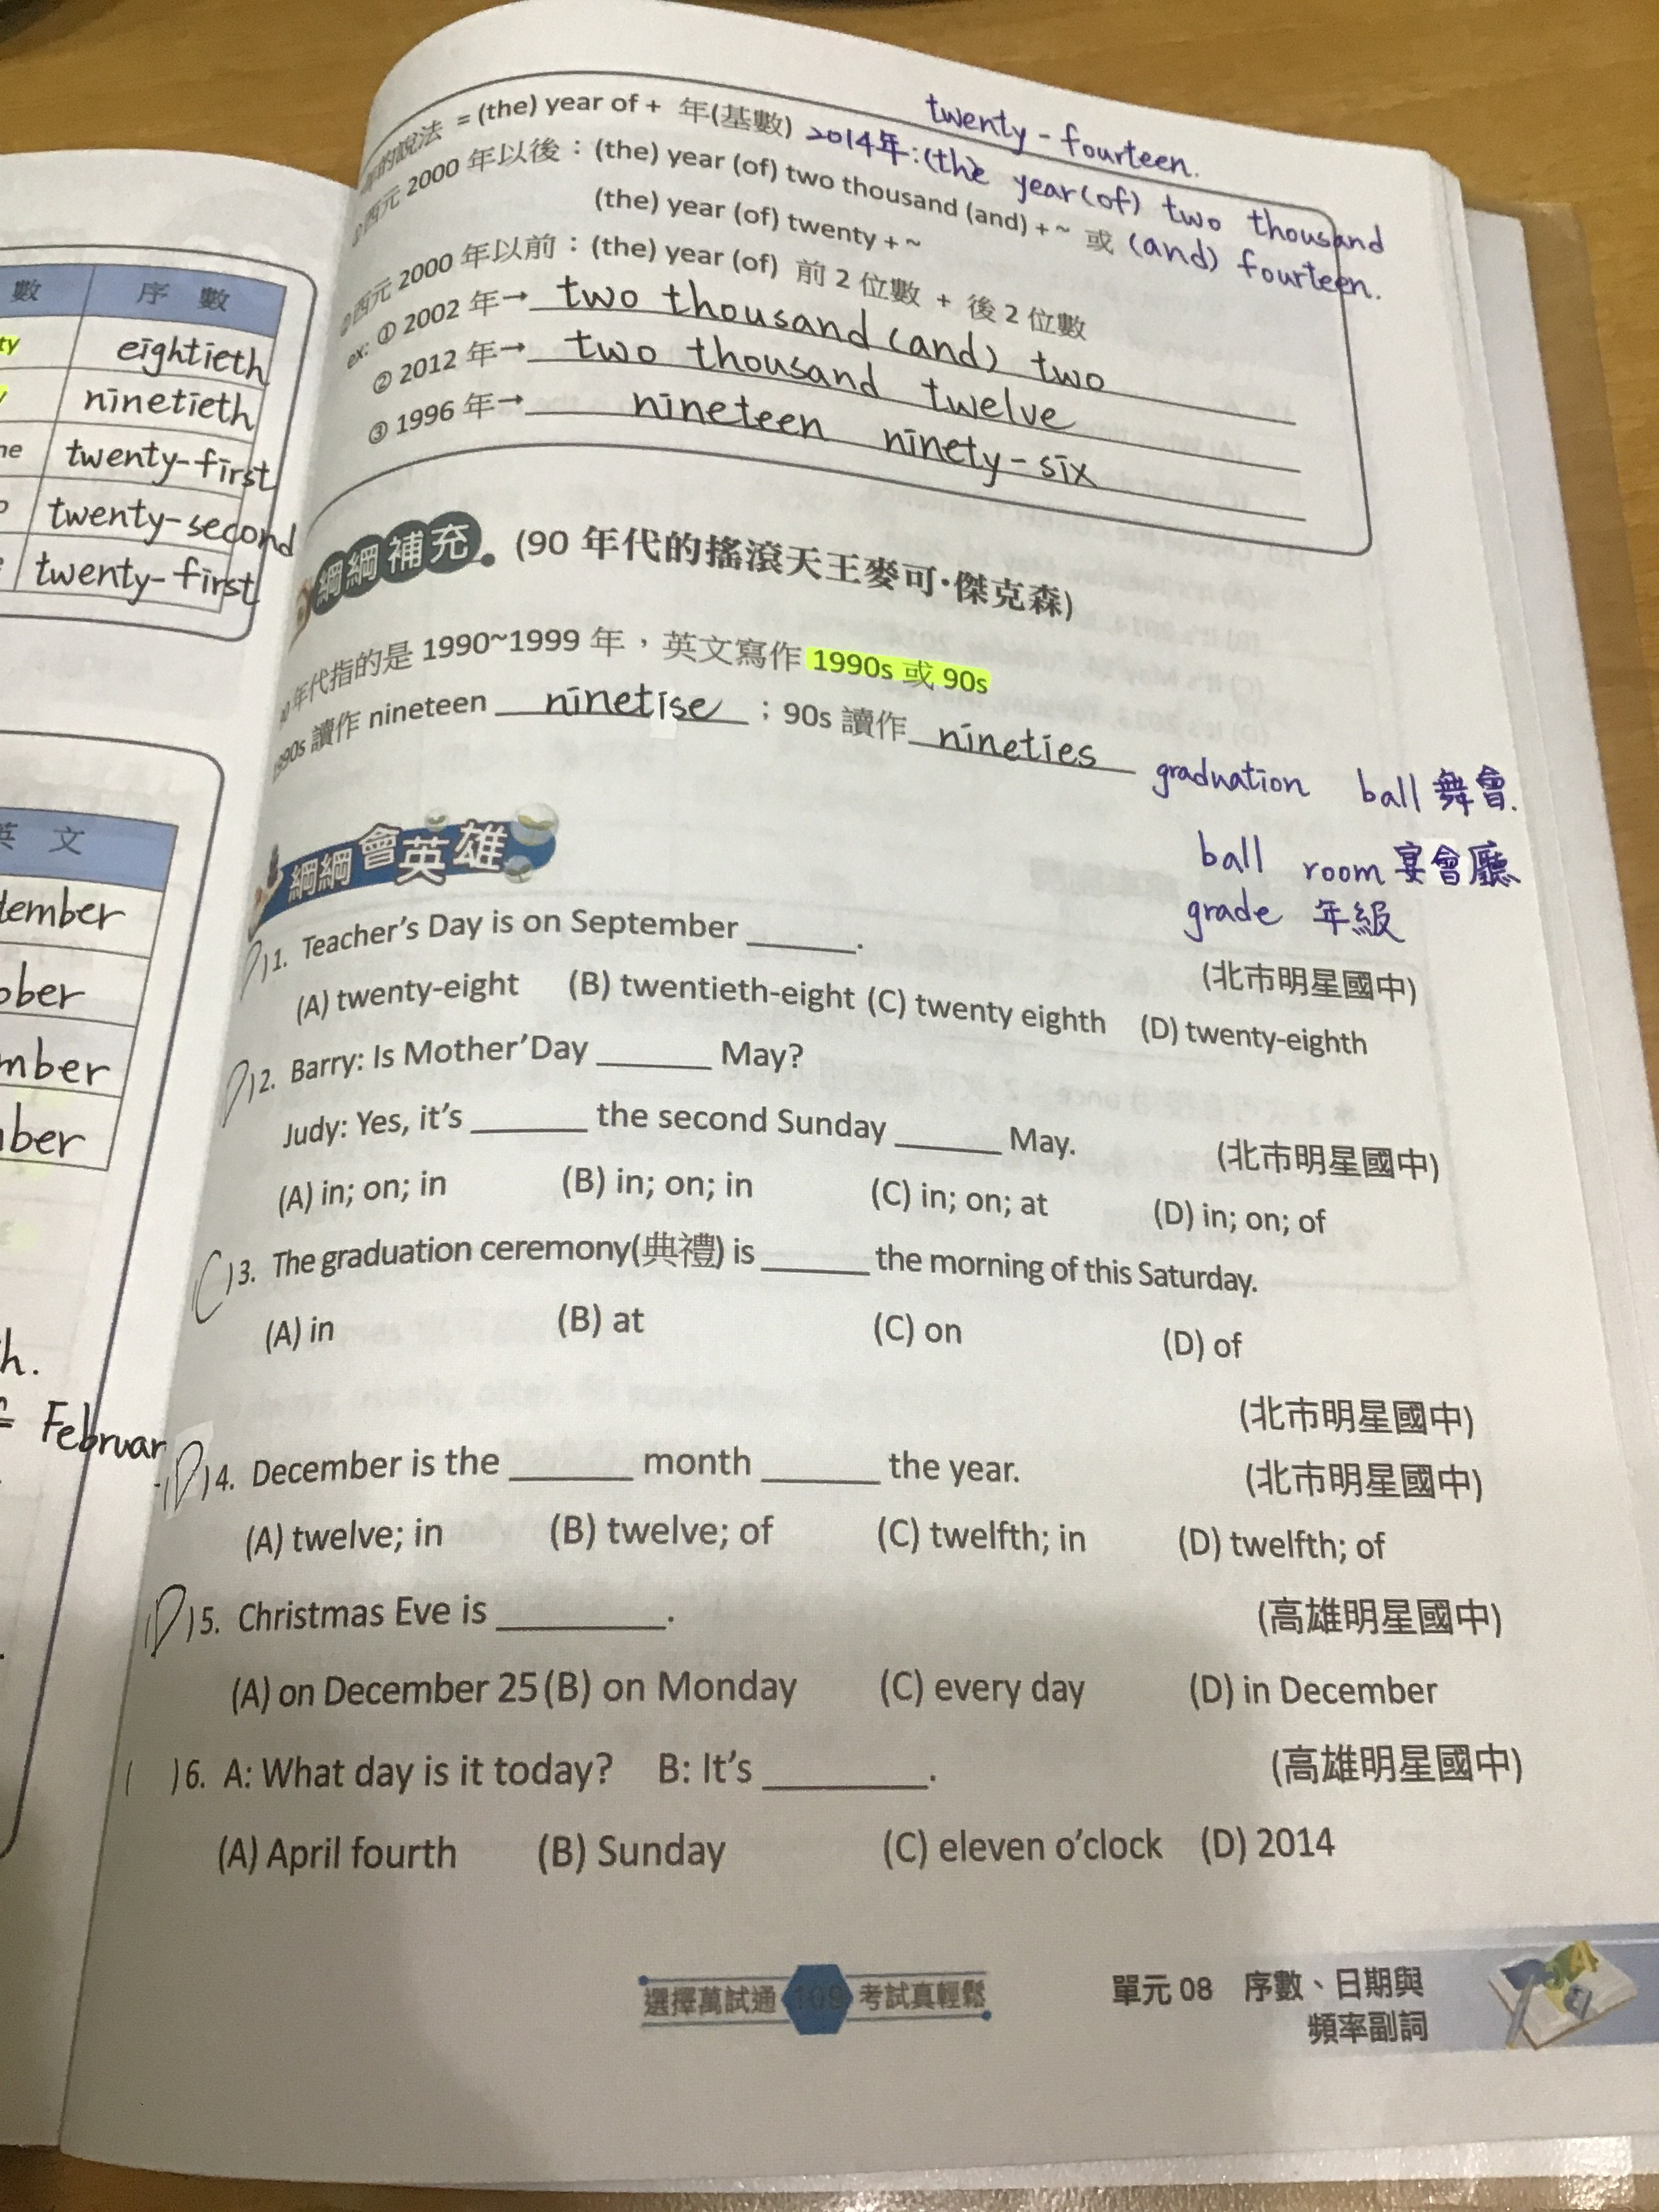 數 序 數
ty eightieth
y ninetieth
ne twenty-first
twenty-second
twenty-first
英 文
tember
ober
mber
ber
h.
= Februar
年的說法 = (the) year of + 年(基數) 2014年:(the year(of) two thousand
twenty-fourteen.
(and) fourteen.
①西元 2000 年以後：(the) year (of) two thousand (and) + ~ 或
(the) year (of) twenty + ~
②西元 2000 年以前：(the) year (of) 前 2 位數 + 後 2 位數
ex: ① 2002 年→ two thousand (and) two
② 2012 年→ two thousand twelve
③ 1996 年→ nineteen ninety-six
綱綱補充 (90 年代的搖滾天王麥可·傑克森)
年代指的是 1990~1999 年，英文寫作 1990s 或 90s
1990s 讀作 nineteen ninetise ；90s 讀作 nineties
graduation ball 舞會.
ball room 宴會廳
grade 年級
綱綱會英雄
(D)1. Teacher's Day is on September ______. (北市明星國中)
(A) twenty-eight (B) twentieth-eight (C) twenty eighth (D) twenty-eighth
(D)2. Barry: Is Mother'Day ______ May?
Judy: Yes, it's ______ the second Sunday ______ May. (北市明星國中)
(A) in; on; in (B) in; on; in (C) in; on; at (D) in; on; of
(C)3. The graduation ceremony(典禮) is ______ the morning of this Saturday.
(A) in (B) at (C) on (D) of
(北市明星國中)
(D)4. December is the ______ month ______ the year. (北市明星國中)
(A) twelve; in (B) twelve; of (C) twelfth; in (D) twelfth; of
(D)5. Christmas Eve is ________. (高雄明星國中)
(A) on December 25 (B) on Monday (C) every day (D) in December
( )6. A: What day is it today? B: It's ________. (高雄明星國中)
(A) April fourth (B) Sunday (C) eleven o'clock (D) 2014
選擇萬試通 109 考試真輕鬆
單元 08 序數、日期與
頻率副詞